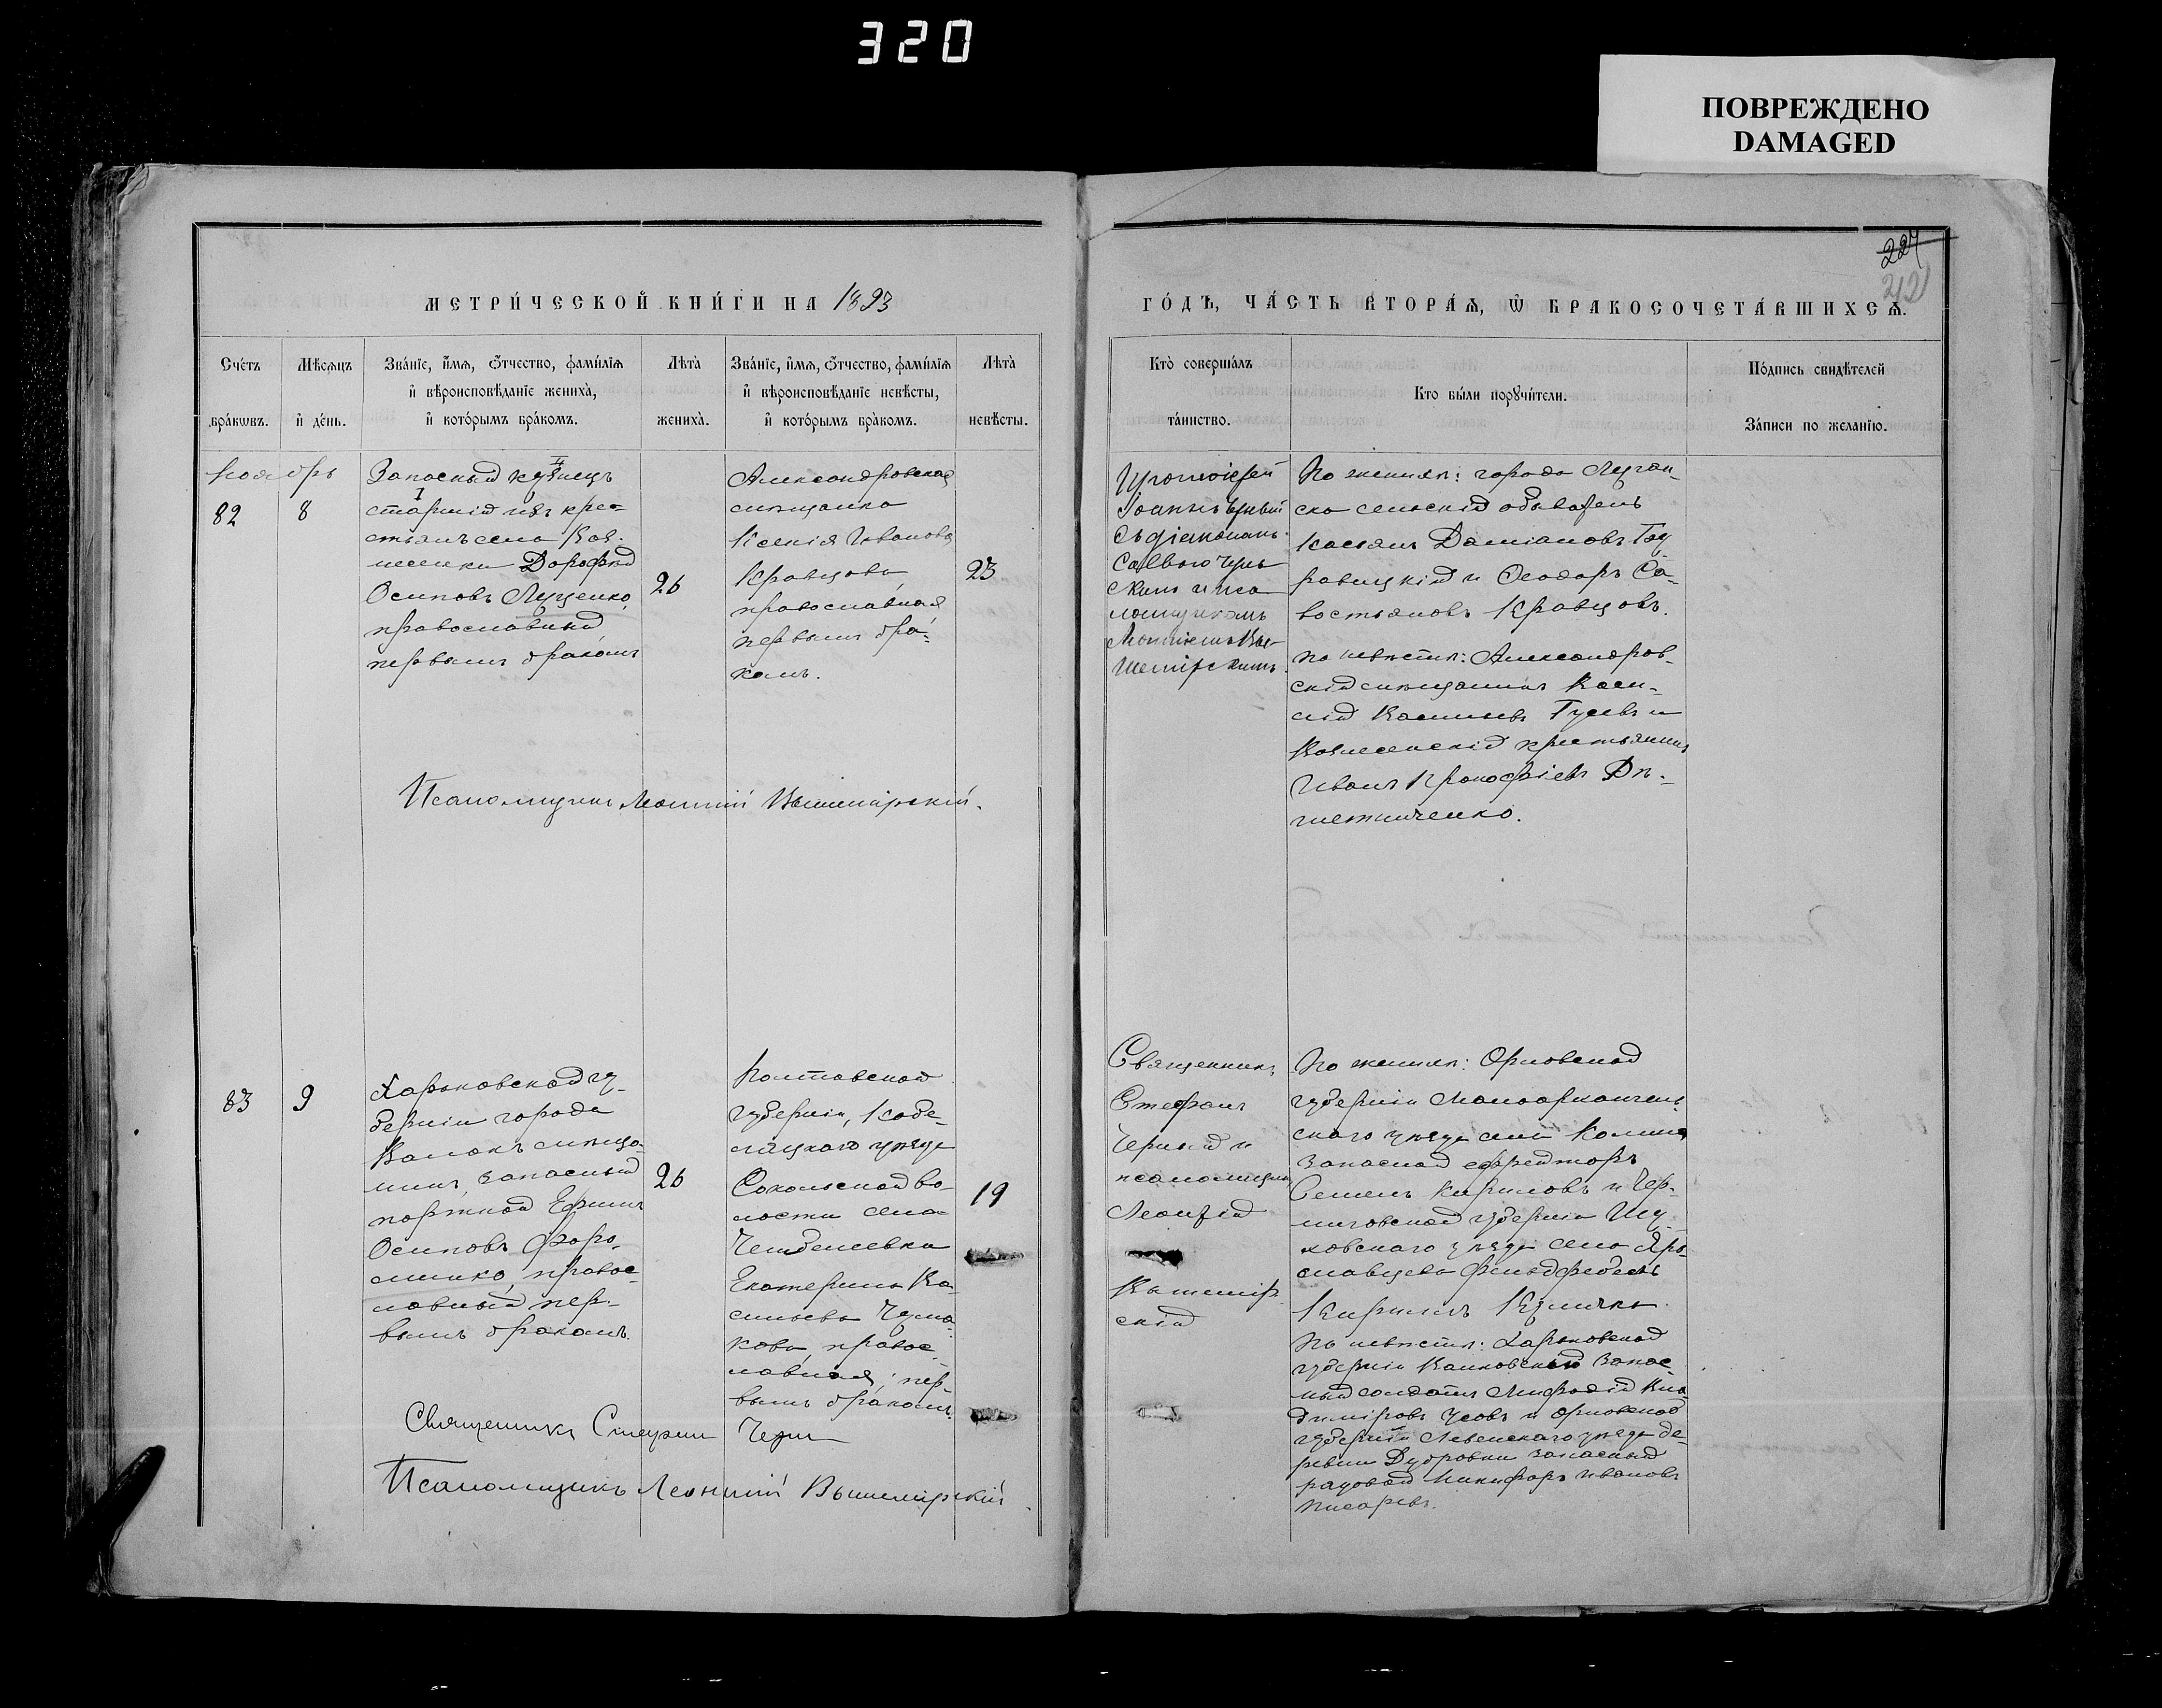 320
ПОВРЕЖДЕНО
DAMAGED
227
212
МЕТРИ́ЧЕСКОЙ КНИ́ГИ НА 1893
ГО́ДЪ, ЧА́СТЬ ВТОРА́Ѧ, Ѽ БРАКОСОЧЕТА́ВШИХСѦ.
Сче́тъ
бра́кѡвъ.
Мѣ́сѧцъ
и҆ де́нь.
Зва́нїе, и҆́мѧ, ѻ҆́тчество, фами́лїѧ
и҆ вѣроисповѣ́данїе жениха̀,
и҆ кото́рымъ бра́комъ.
Лѣта̀
жениха̀.
Зва́нїе, и҆́мѧ, ѻ҆́тчество, фами́лїѧ
и҆ вѣроисповѣ́данїе невѣ́сты,
и҆ кото́рымъ бра́комъ.
Лѣта̀
невѣ́сты.
Кто̀ соверша́лъ
та́инство.
Кто̀ бы́ли порꙋчи́тели.
По́дпись свидѣ́телей
За́писи по жела́нїю.
Ноябрь
82
8
Запасный кузнецъ
старшій изъ кре-
стьянъ села Воз-
несенки Дорофей
Осиповъ Луценко,
православный
первымъ бракомъ
26
Александровская
мѣщанка
Ксенія Иванова
Кравцова
православная
первымъ бра-
комъ.
23
Протоіерей
Іоаннъ
съ діакономъ
и пса
ломщикомъ
Леонтіемъ Вы
шемірскимъ.
По женихѣ: города Луган-
ска сельскій обыватель
Касьянъ Даміановъ
и Ѳеодоръ Са-
востьяновъ Кравцовъ.
По невѣстѣ: Александров-
скій мѣщанинъ Васи-
лій Васильевъ Гусевъ и
Вознесенскій крестьянинъ
Иванъ Прокофіевъ
Псаломщикъ Леонтій Вышемірскій.
83
9
Харьковской гу-
берніи города
Валокъ мѣща-
нинъ, запасный
портной Ефимъ
Осиповъ
православ-
ловный пер-
вымъ бракомъ.
26
Полтавской
губерніи, Кобе-
ляцкаго уѣзда
Сокольской во-
лости села
Екатерина Ва-
сильева Чума-
кова, правос-
лавная, пер-
вымъ бракомъ.
19
Священникъ
Стефанъ
Черный и
псаломщикъ
Леонтій
Вышемір
скій
По женихѣ: Орловской
губерніи Малоархангель-
скаго уѣзда села
запасной ефрейторъ
Семенъ Кириловъ и Чер-
ниговской губерніи
уѣзда села Яро-
славцева фельдфебель
Кириллъ
По невѣстѣ: Харьковской
губерніи Валковскій запас-
ный солдатъ Мифодій Вла-
диміровъ Усовъ и Орловской
губерніи Ливенскаго уѣзда де-
ревни Дубровки запасный
рядовой Никифоръ Ивановъ
Писаревъ.
Священникъ Стефанъ Черный
Псаломщикъ Леонтій Вышемірскій